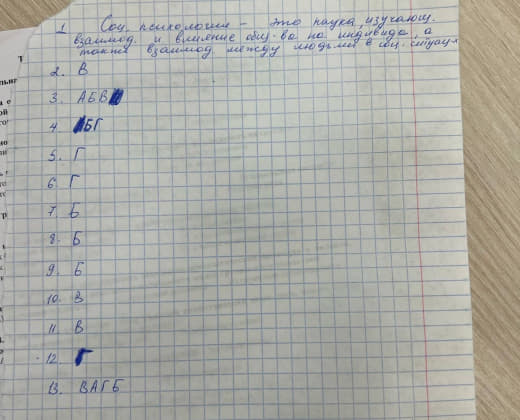 1 Соц. психология – это наука, изучающ.
взаимод. и влияние общ-ва на индивида, а
также взаимод. между людьми в общ. ситуац
2. В
3. АБВ
4. БГ
5. Г
6. Г
7. Б
8. Б
9. Б
10. В
11. В
12. Г
13. ВАГБ